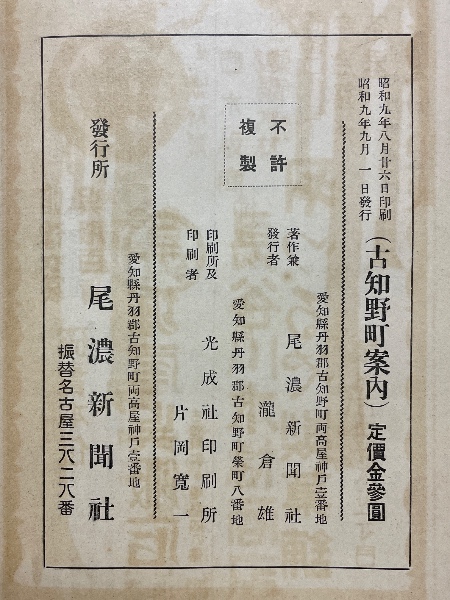 昭和九年八月廿六日印刷
昭和九年九月一日發行
(古知野町案內) 定價金參圓
不許
複製
愛知縣丹羽郡古知野町両高屋神戶壹番地
著作兼
發行者
尾濃新聞社
瀧倉雄
愛知縣丹羽郡古知野町榮町八番地
印刷所及
印刷者
光成社印刷所
片岡寬一
愛知縣丹羽郡古知野町両高屋神戶壹番地
發行所
尾濃新聞社
振替名古屋三八二八番